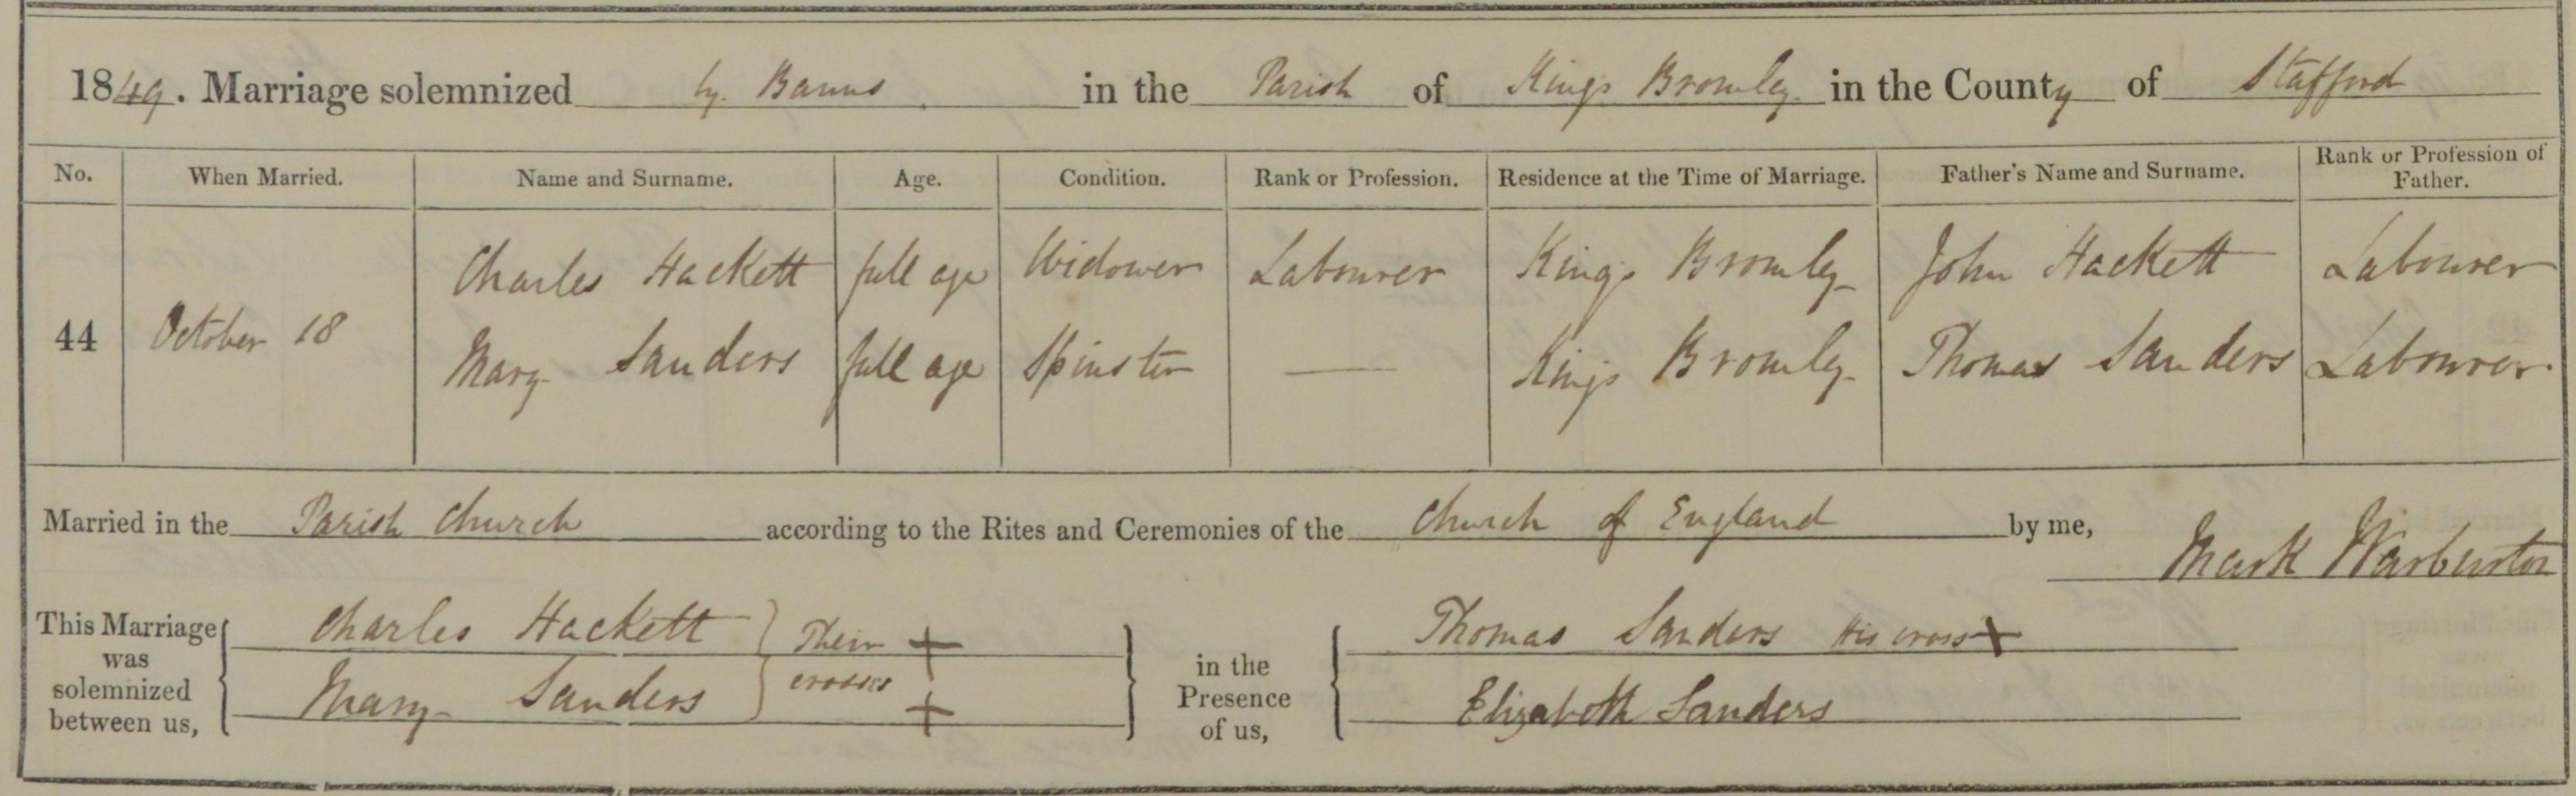 1849. Marriage solemnized by Banns in the Parish of Kings Bromley in the County of Stafford
No. When Married. Name and Surname. Age. Condition. Rank or Profession. Residence at the Time of Marriage. Father's Name and Surname. Rank or Profession of Father.
Charles Hackett full age Widower Labourer Kings Bromley John Hackett Labourer
44 October 18
Mary Sanders full age Spinster — Kings Bromley Thomas Sanders Labourer.
Married in the Parish Church according to the Rites and Ceremonies of the Church of England by me,
Mark Warburton
This Marriage was solemnized between us,
Charles Hackett
Mary Sanders
Their + crosses +
in the Presence of us,
Thomas Sanders His cross +
Elizabeth Sanders